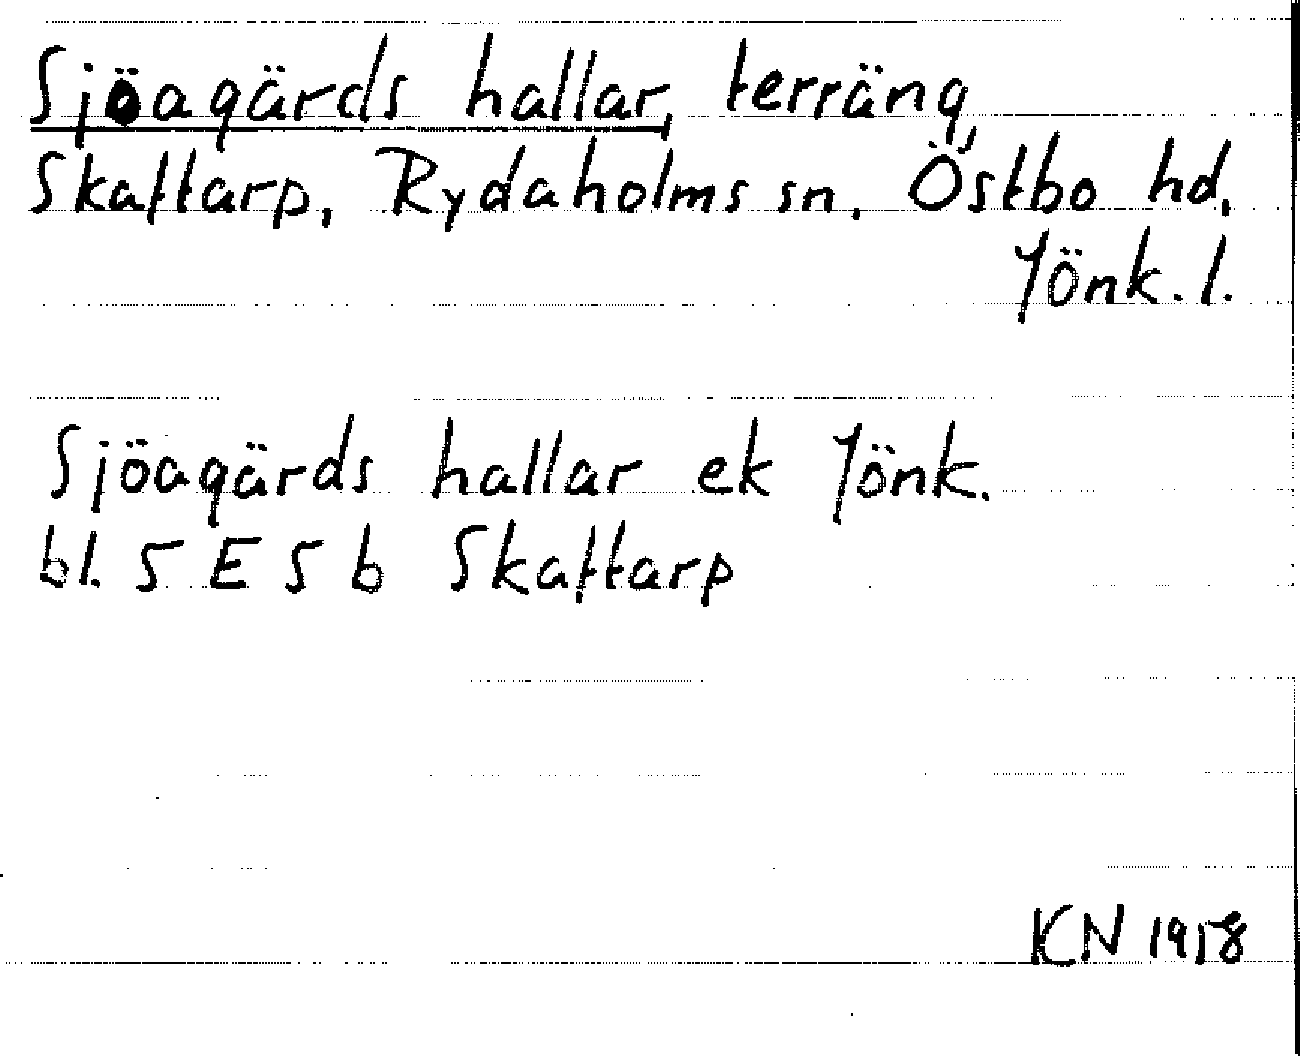 Sjöagärds hallar, terräng,
Skaftarp, Rydaholms sn, Östbo hd,
Jönk. l.
Sjöagärds hallar ek Jönk.
bl. 5 E 5 b Skaftarp
KN 1958